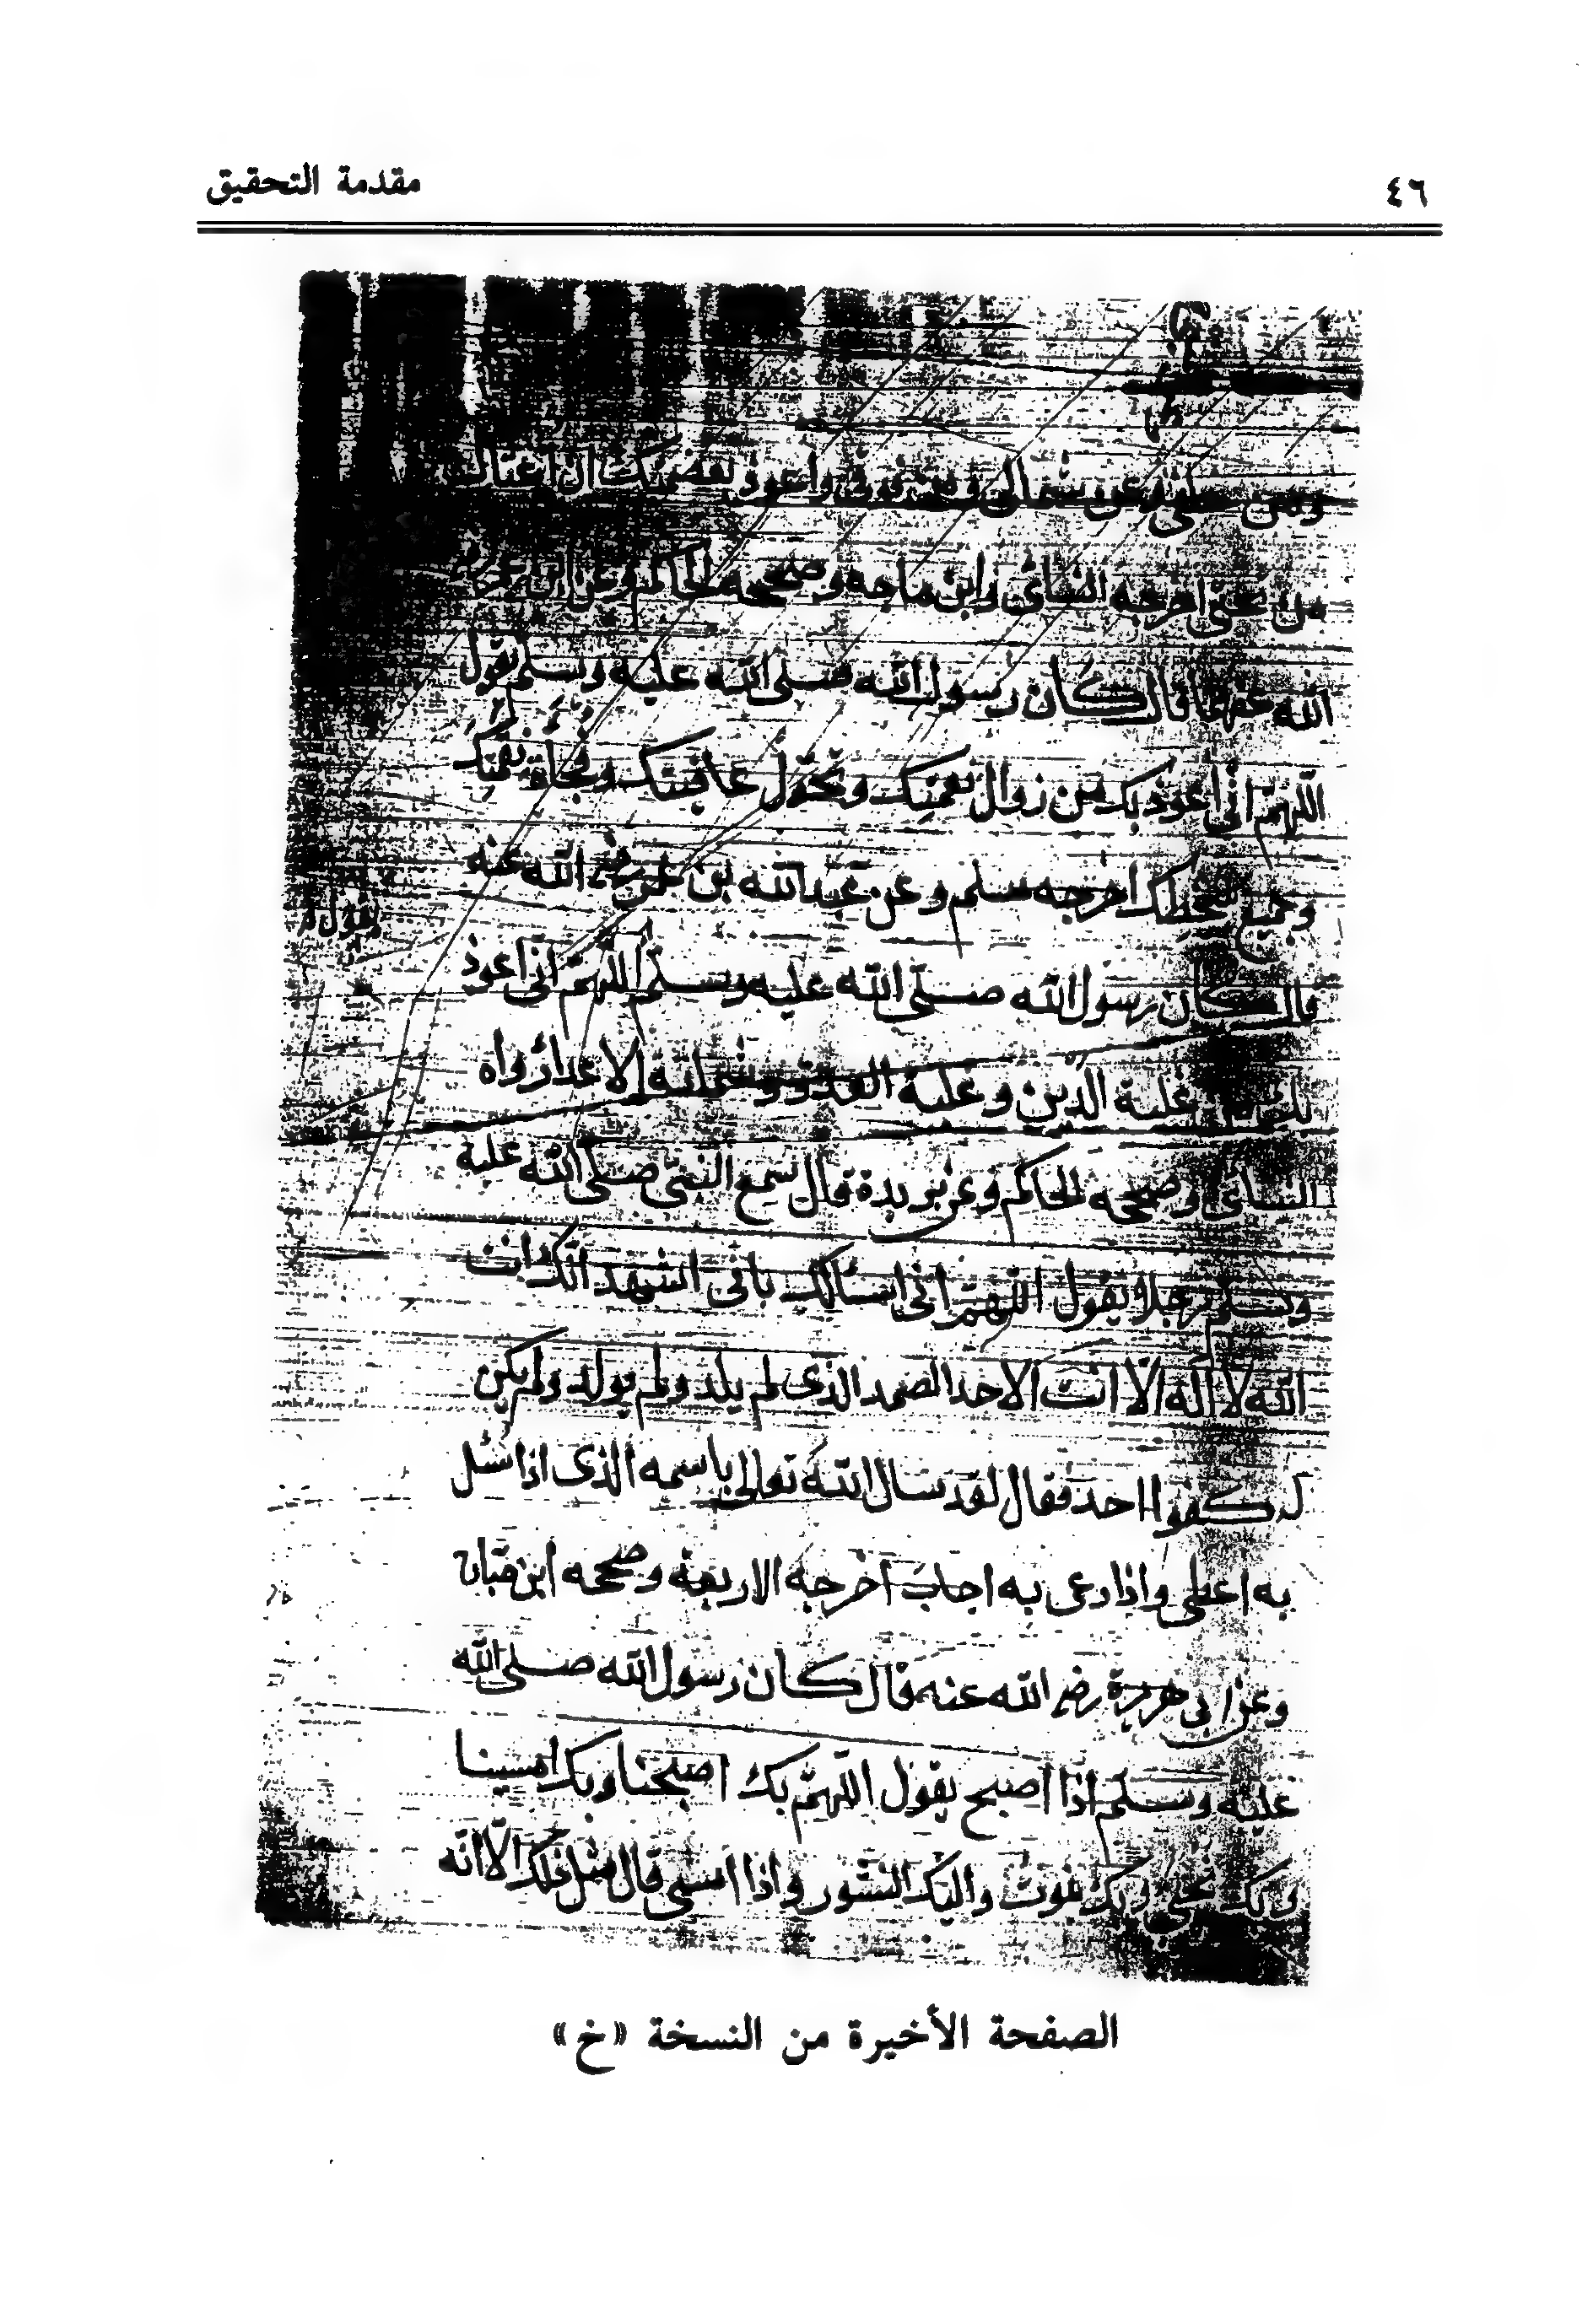 ٤٦
مقدمة التحقيق
ومن خلفي وعن شمالي ومن فوقي واعوذ بعظمتك ان اغتال
من تحتي اخرجه النسائى وابن ماجه وصححه الحاكم وعن ابن عمر
الله عنهما قال كان رسول الله صلى الله عليه وسلم يقول
اللهم انى اعوذ بك من زوال نعمتك وتحول عافيتك وفجاة نقمتك
وجميع سخطك اخرجه مسلم وعن عبد الله بن عمر رضى الله عنه
يقول
قال كان رسول الله صلى الله عليه وسلم اللهم انى اعوذ
بك من غلبة الدين وغلبة العدو وشماتة الاعداء رواه
النسائى وصححه الحاكم وعن بريدة قال سمع النبى صلى الله عليه
وسلم رجلا يقول اللهم انى اسئالك بانى اشهد انك انت
الله لا اله الا انت الاحد الصمد الذى لم يلد ولم يولد ولم يكن
له كفوا احد فقال لقد سال الله تعالى باسمه الذى اذا سئل
به اعطى واذا دعى به اجاب اخرجه الاربعة وصححه ابن حبان
وعن ابى هريرة رضى الله عنه قال كان رسول الله صلى الله
عليه وسلم اذا اصبح يقول اللهم بك اصبحنا وبك امسينا
وبك نحيى وبك نموت واليك النشور واذا امسى قال مثل ذلك الا انه
الصفحة الأخيرة من النسخة «خ»